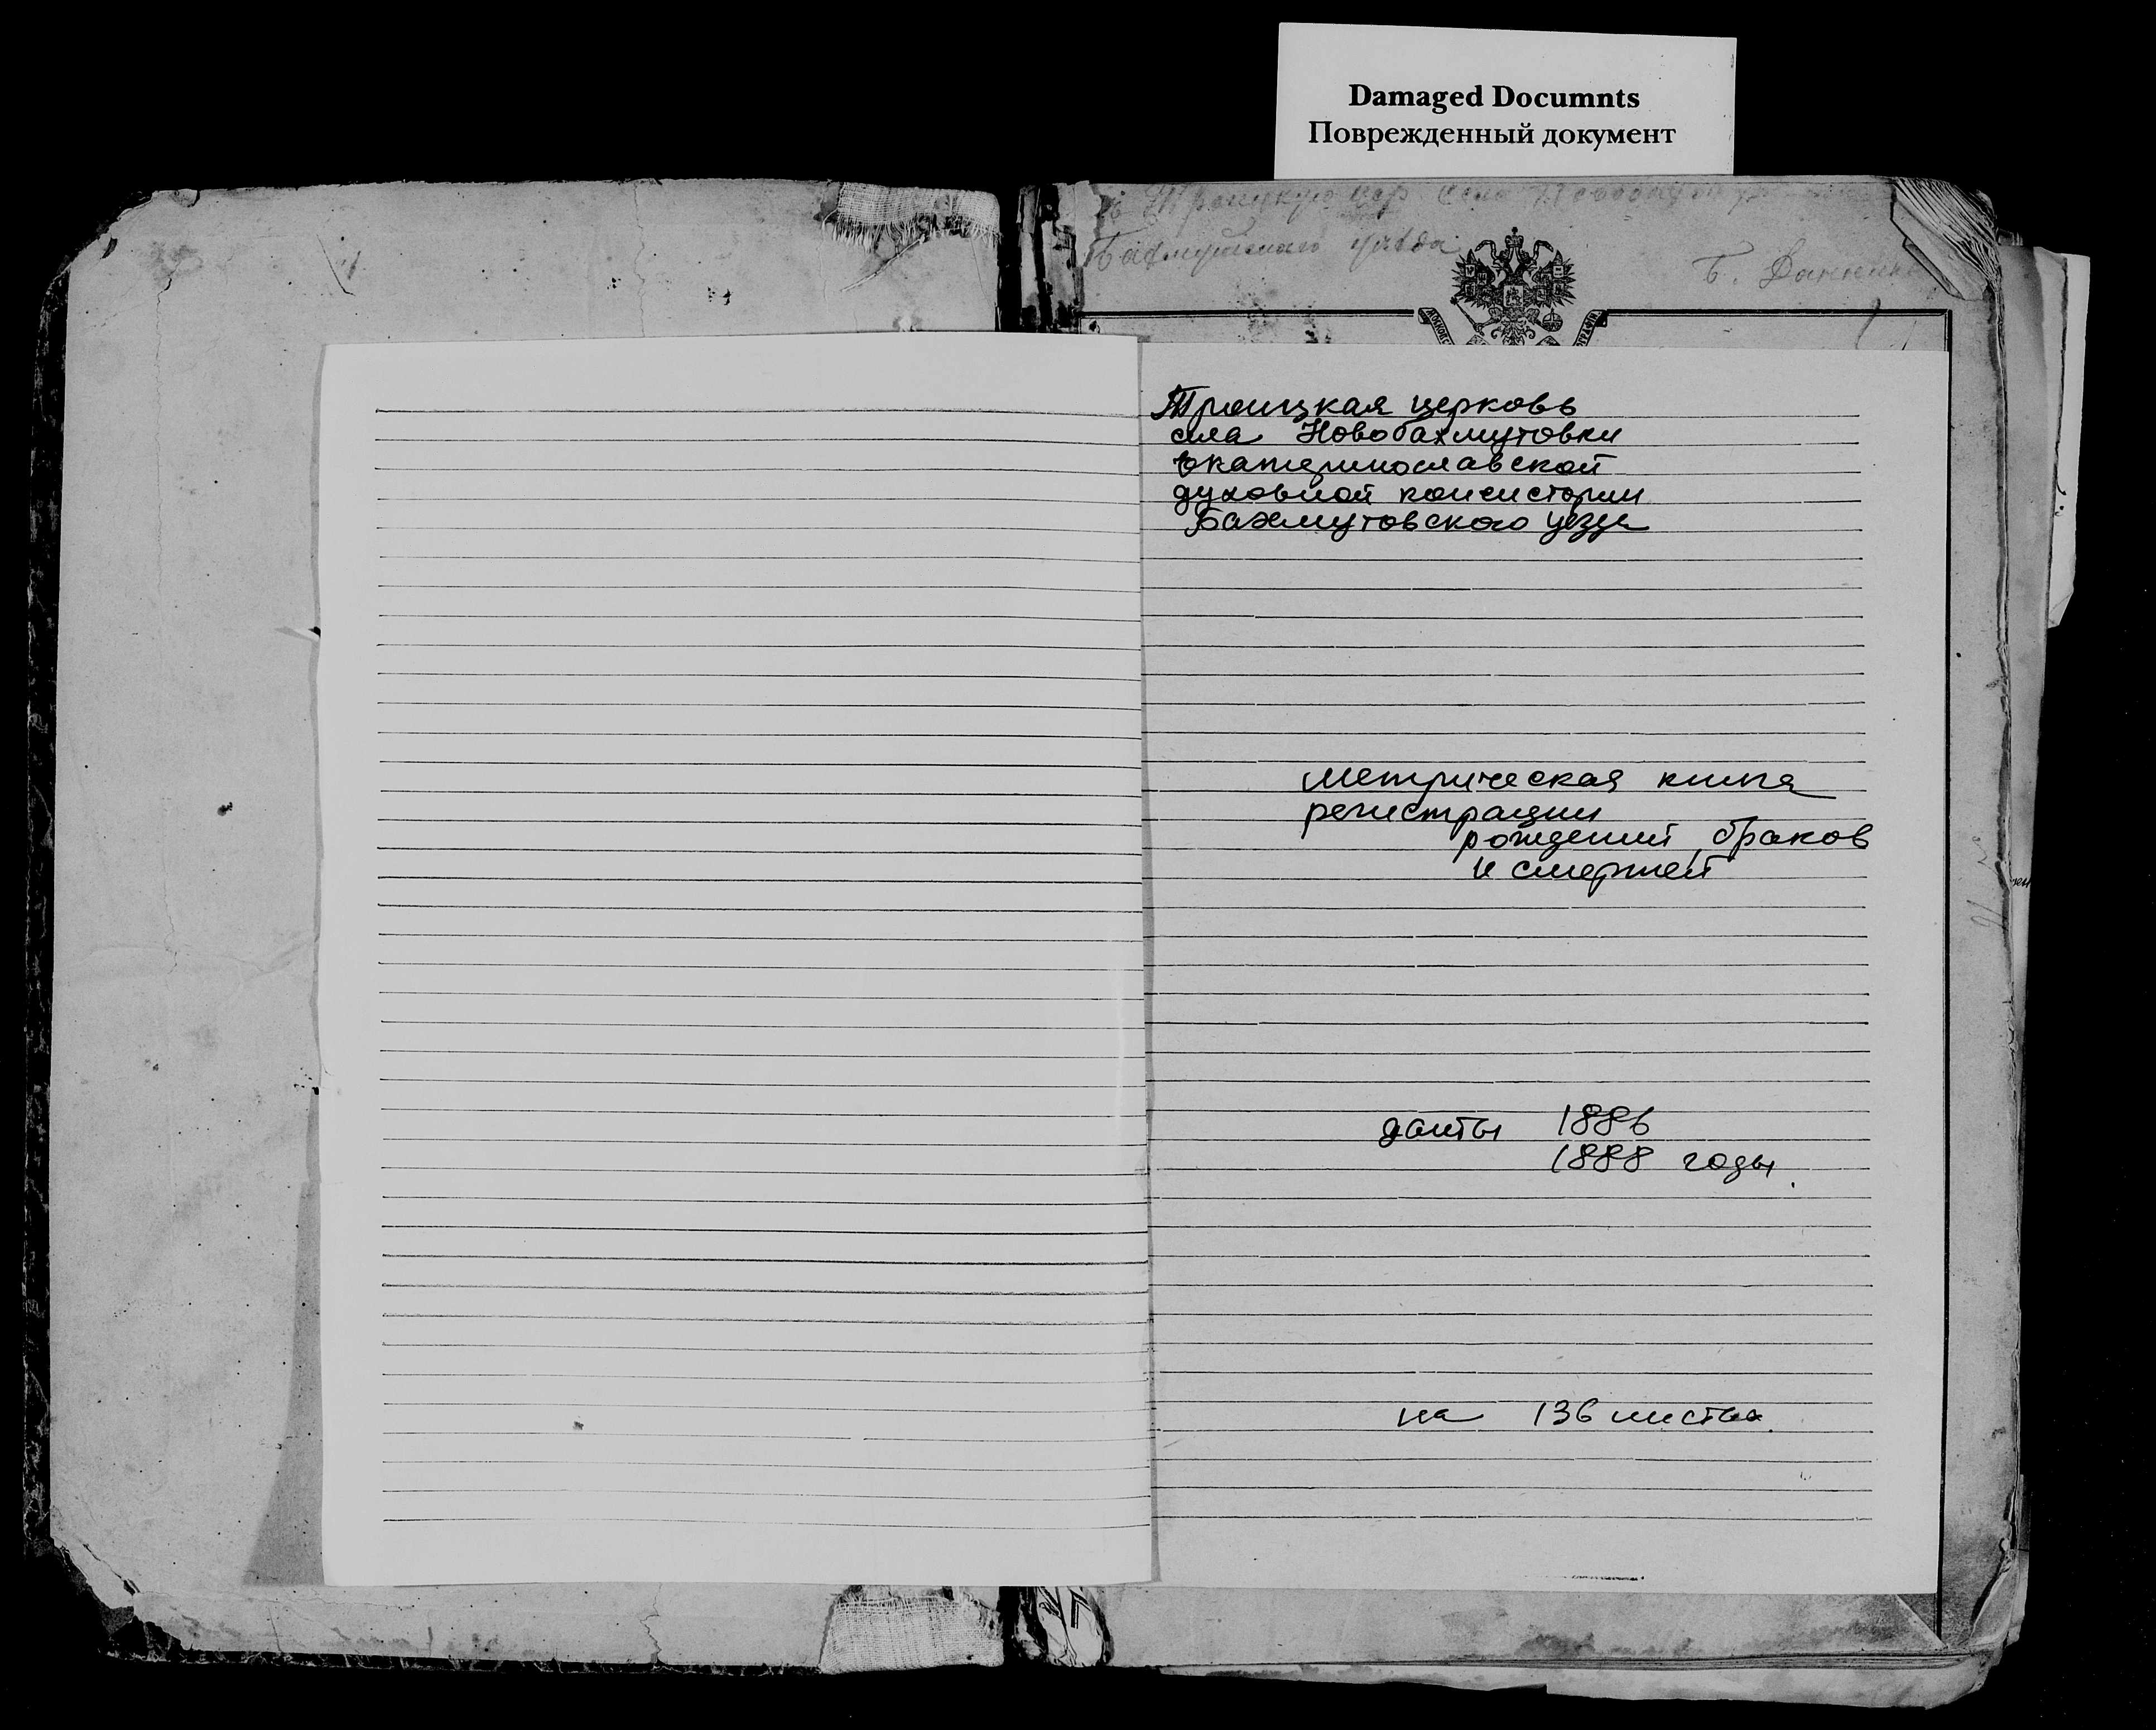 Damaged Documnts
Поврежденный документ
Троицкую цер. села
Бахмутскаго уѣзда
Троицкая церковь
села Новобахмутовки
Екатеринославской
духовной консистории
Бахмутовского уезда
метрическая книга
регистрации
рождений, браков
и смертей
даты 1886
1888 годы.
на 136 листах.